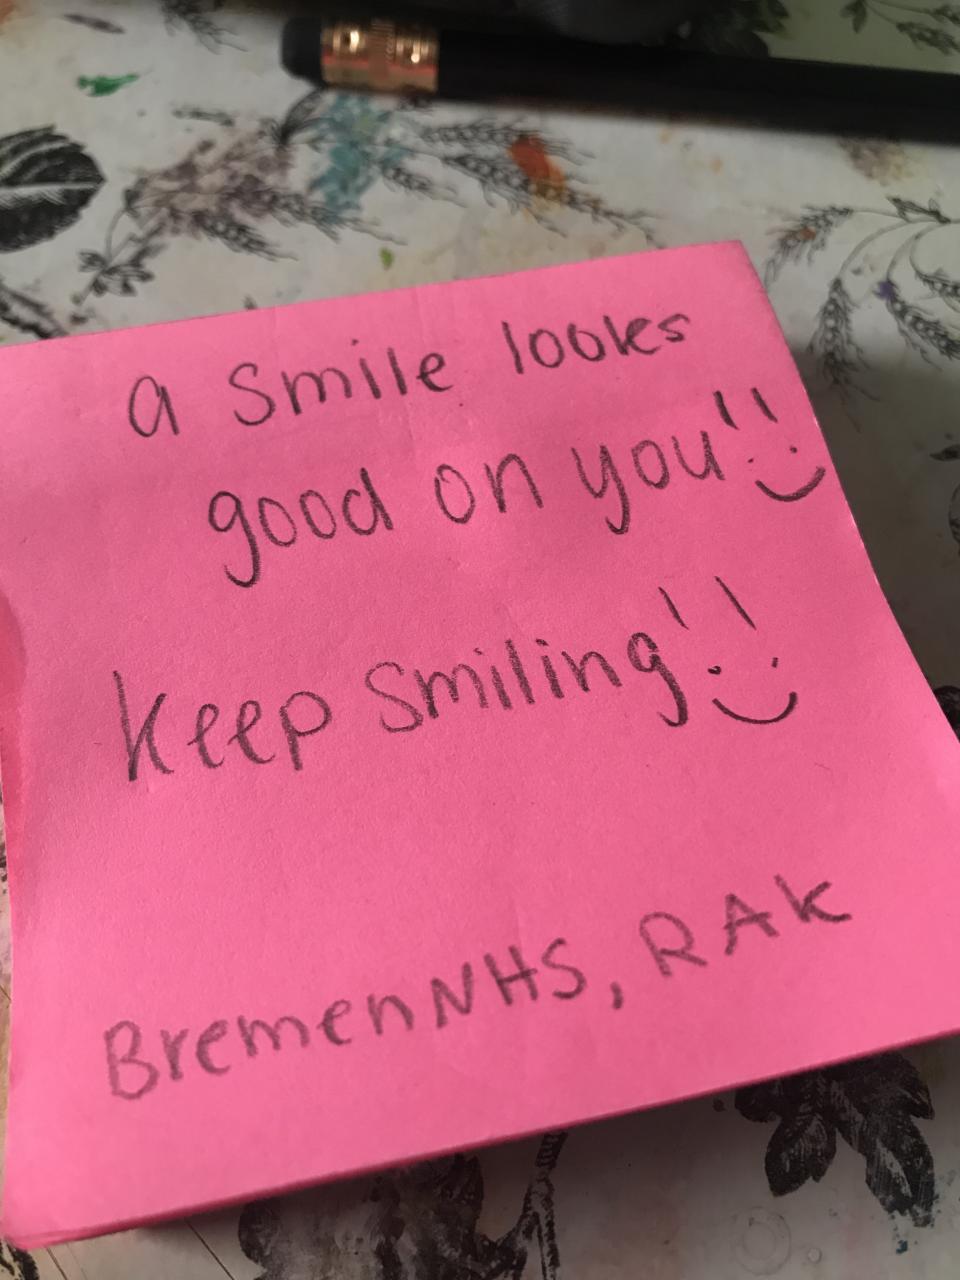 a smile looks
good on you!! :)
Keep smiling!! :)
BremenNHS, RAK